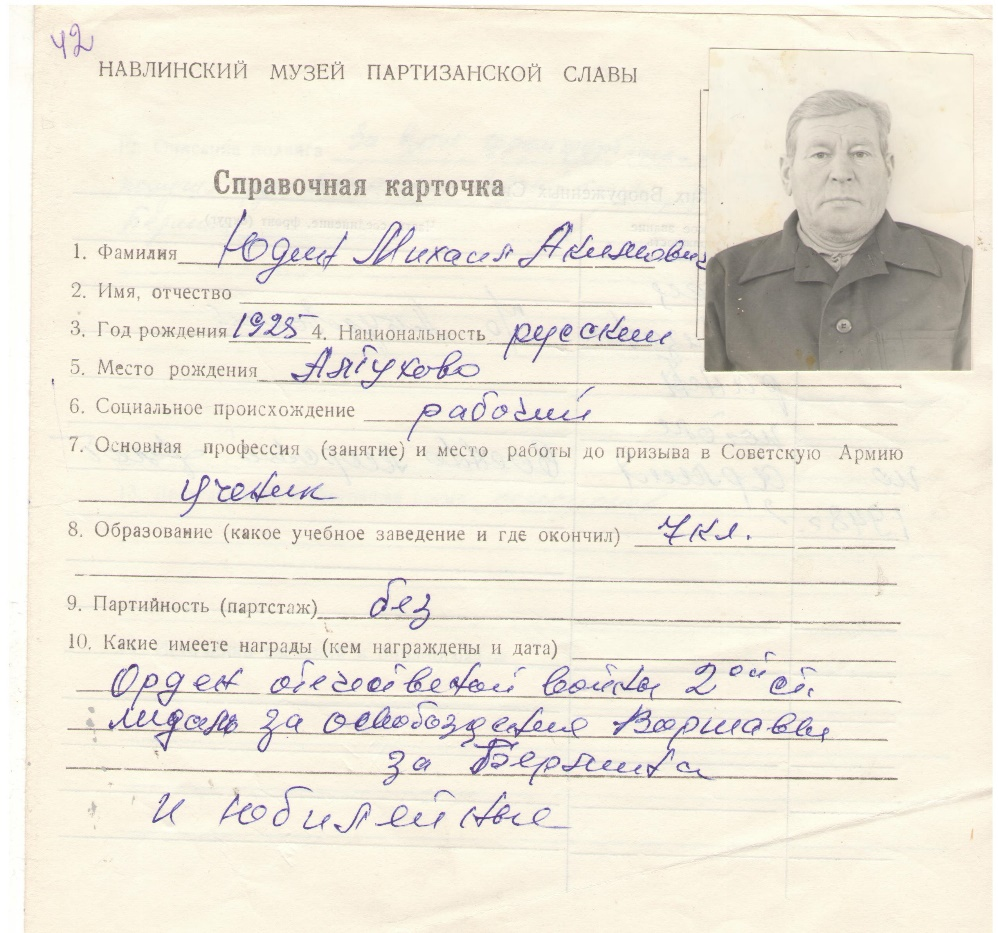 42
НАВЛИНСКИЙ МУЗЕЙ ПАРТИЗАНСКОЙ СЛАВЫ
Справочная карточка
1. Фамилия Юдин Михаил Акимович
2. Имя, отчество
3. Год рождения 1925 4. Национальность русский
5. Место рождения Алтухово
6. Социальное происхождение рабочий
7. Основная профессия (занятие) и место работы до призыва в Советскую Армию
ученик
8. Образование (какое учебное заведение и где окончил) 7 кл.
9. Партийность (партстаж) без
10. Какие имеете награды (кем награждены и дата)
Орден отечественой войны 2ой ст.
медаль за освобаздения Варшавы
за Берлина
и юбилейные